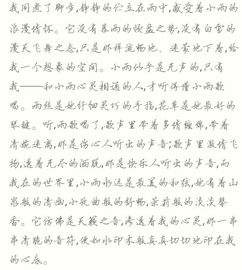 我同煮了脚步,静静的伫立在雨中,感受着小雨的
浪漫情怀。它没有暴雨的倾盆之势,没有白雪的
漫天飞舞之态,只是那样流畅地、迷蒙地下着,给
我一个想象的空间。小雨似乎是无声的,只有
我——和小雨心灵相通的人,才听得懂小雨歌
唱。雨丝是她仔细灵巧的手指,花草是她最好的
琴键。听,雨歌唱了,歌声里带着多情缠绵,带着
清婉迷离,那是伤心人听出的声音;歌声里激情飞
扬,透着无尽的洒脱,那是快乐人听出的声音,而
我在的世界里,小雨永远是最美的和弦,她有着山
茶般的清幽,小夜曲般的舒畅,茉莉般的淡淡馨
香。它仿佛是天籁之音,渗透着我的心灵,那一串
串清脆的音符,便如水印木般真真切切地印在我
的心底。